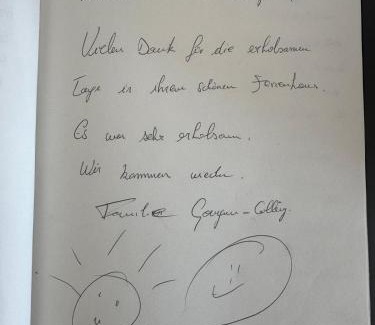 Vielen Dank für die erholsamen
Tage in ihrem schönen Ferienhaus.
Es war sehr erholsam.
Wir kommen wieder.
Familie